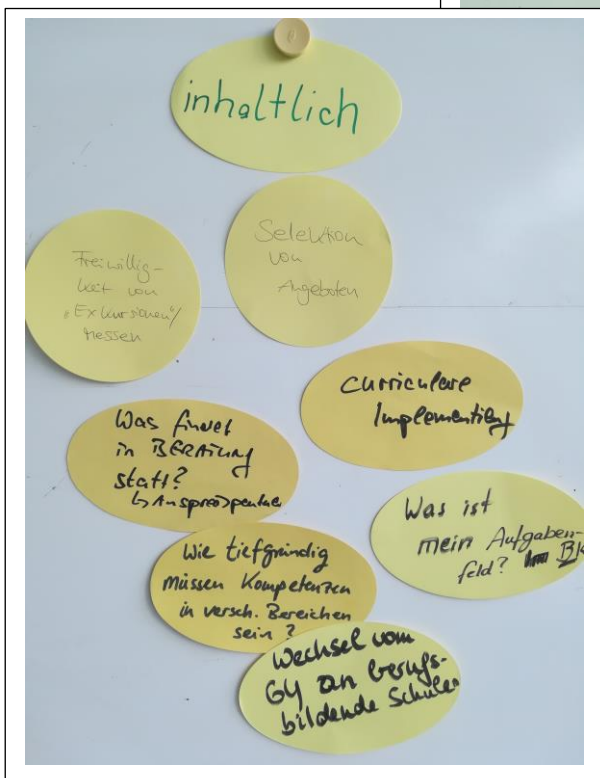 inhaltlich
Freiwillig-
keit von
„Exkursionen“/
Messen
Selektion
von
Angeboten
Curriculare
Implementierg
Was findet
in BERAtung
statt?
↳ Ansprechpartner
Was ist
mein Aufgaben-
feld? BK
Wie tiefgründig
müssen Kompetenzen
in versch. Bereichen
sein?
Wechsel vom
GY an berufs-
bildende Schulen